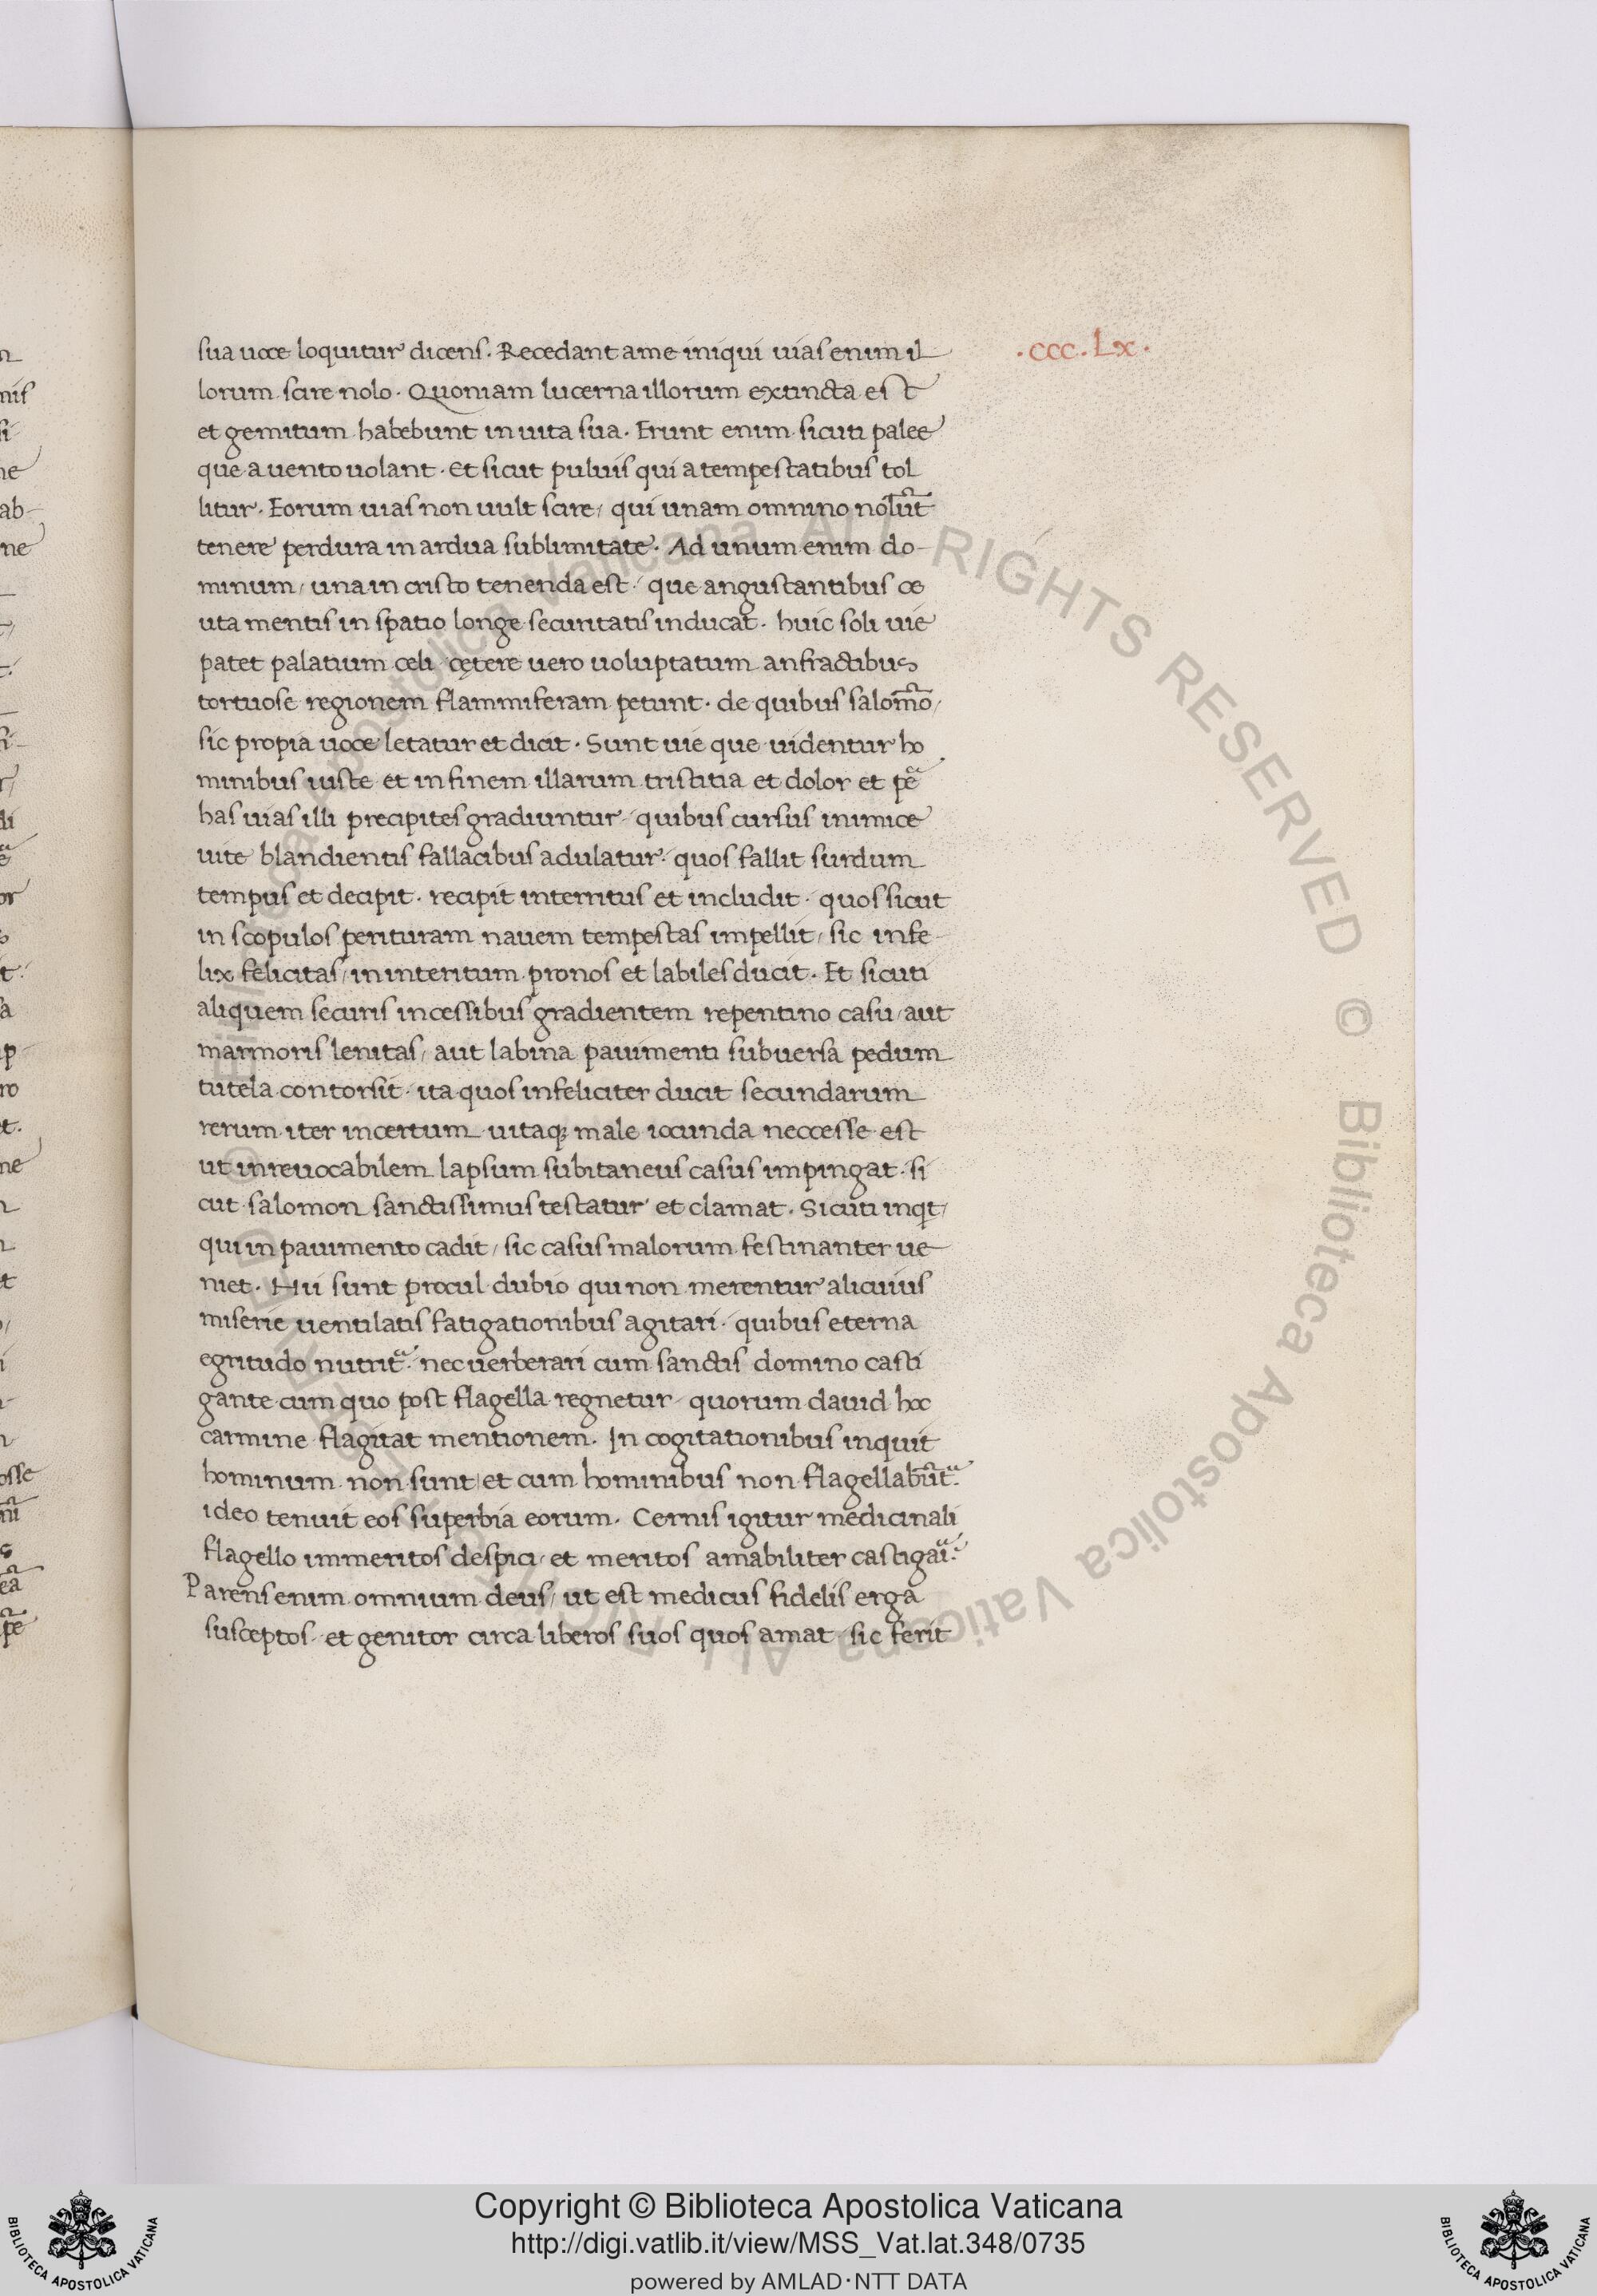 sua uoce loquitur dicens. Recedant a me iniqui uias enim il
.ccc.Lx.
lorum scire nolo. Quoniam lucerna illorum extincta est
et gemitum habebunt in uita sua. Erunt enim sicuti palee
que a uento uolant. Et sicut puluis qui a tempestatibus tol
litur. Eorum uias non uult scire, qui unam omnino nolūt
tenere perdura in ardua sublimitate. Ad unum enim do-
minum, una in cristo tenenda est, que angustantibus ce
uta mentis in spatio longe securitatis inducat. huic soli uie
patet palatium celi, cętere uero uoluptatum anfractibus
tortuose regionem flammiferam petunt. de quibus salomō,
sic propia uoce letatur et dicit. Sunt uie que uidentur ho
minibus iuste et in finem illarum tristitia et dolor et pēa.
has uias illi precipites gradiuntur, quibus cursus inimice
uite blandientis fallacibus adulatur, quos fallit surdum
tempus et decipit. recipit interritus et includit, quos sicut
in scopulos perituram nauem tempestas impellit, sic infe-
lix felicitas, in interitum pronos et labiles ducit. Et sicuti
aliquem securis incessibus gradientem repentino casu, aut
marmoris lenitas, aut labina pauimenti subuersa pedum
tutela contorsit, ita quos infeliciter ducit secundarum
rerum iter incertum uitaq; male iocunda neccesse est
ut inreuocabilem lapsum subitaneus casus impingat. si
cut salomon sanctissimus testatur et clamat. Sicuti inqt,
qui in pauimento cadit, sic casus malorum festinanter ue
niet. Hii sunt procul dubio qui non merentur alicuius
miserie uentilatis fatigationibus agitari, quibus eterna
egritudo nutrit᷑. nec uerberari cum sanctis domino casti
gante cum quo post flagella regnetur, quorum dauid hoc
carmine flagitat mentionem. In cogitationibus inquit
hominum non sunt, et cum hominibus non flagellabūt᷑.
ideo tenuit eos superbia eorum. Cernis igitur medicinali
flagello immeritos despici, et meritos amabiliter castigai᷑.
Parens enim omnium deus, ut est medicus fidelis erga
susceptos, et genitor circa liberos suos quos amat, sic ferit
© Biblioteca Apostolica Vaticana ALL RIGHTS RESERVED
Copyright © Biblioteca Apostolica Vaticana
http://digi.vatlib.it/view/MSS_Vat.lat.348/0735
powered by AMLAD·NTT DATA
BIBLIOTECA APOSTOLICA VATICANA
BIBLIOTECA APOSTOLICA VATICANA